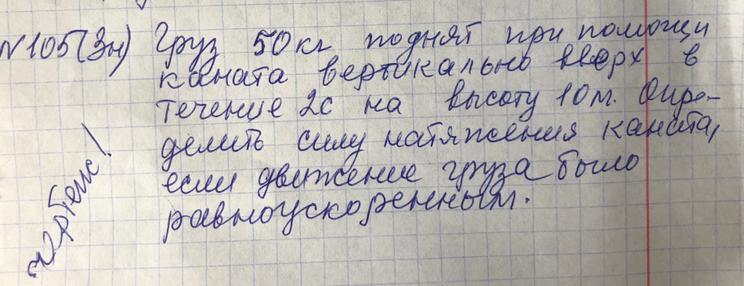 N105(3н) Груз 50кг поднят при помощи
каната вертикально вверх в
течение 2с на высоту 10м. Опре-
делить силу натяжения каната,
если движение груза было
равноускоренным.
чертеж!